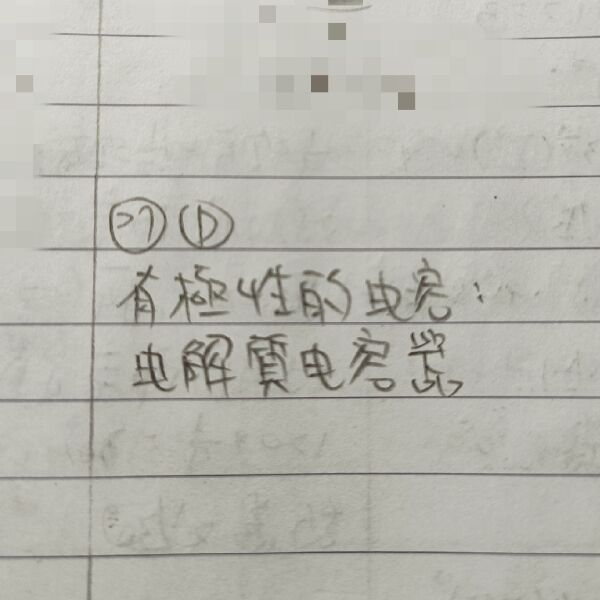 27 D
有極性的电容:
电解質电容器